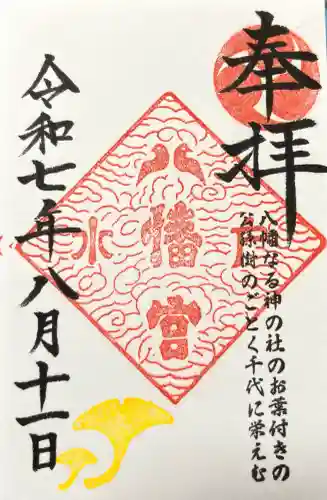 奉拝
八幡なる神の社のお葉付きの
公孫樹のごとく千代に栄えむ
八幡宮
令和七年八月十一日